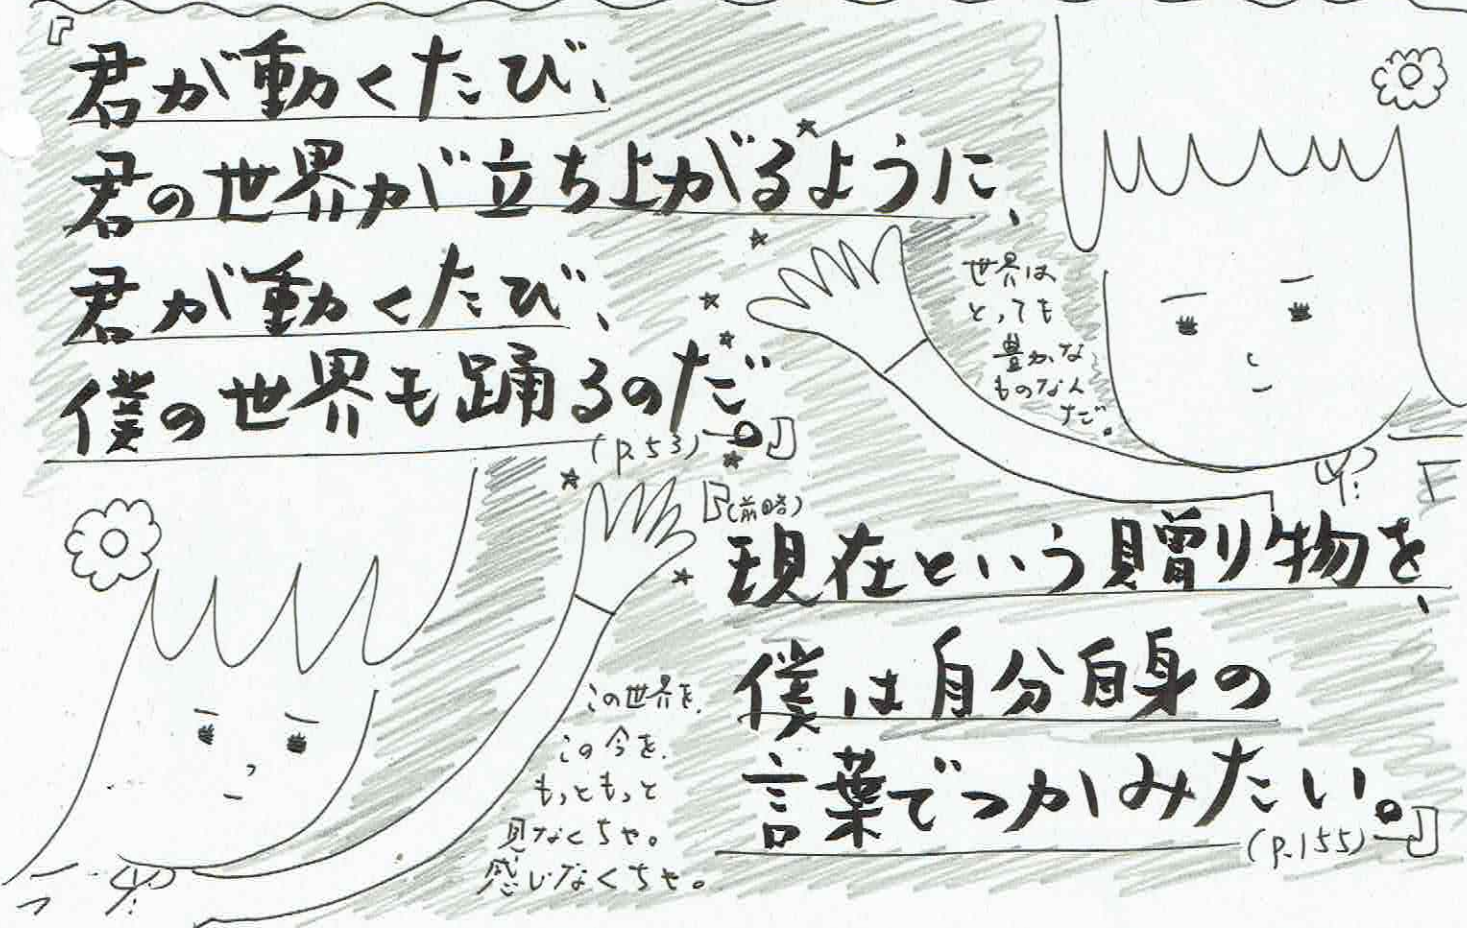 『君が動くたび、
君の世界が立ち上がるように、
君が動くたび、
僕の世界も踊るのだ。』
(p.53)
世界は
とっても
豊かな
ものなん
だ。
『(前略)
現在という贈り物を、
僕は自分自身の
言葉でつかみたい。』
(p.155)
この世界を、
この今を、
もっともっと
見なくちゃ。
感じなくちゃ。